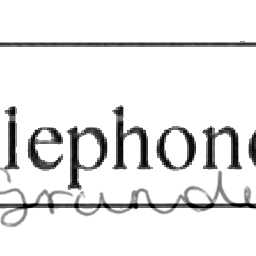 lephone
Grande